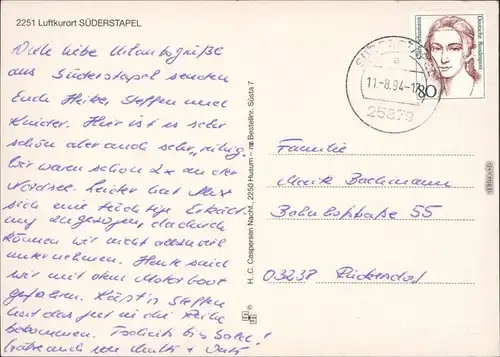 2251 Luftkurort SÜDERSTAPEL
Viele liebe Urlaubsgrüße
aus Süderstapel senden
Euch Heike, Steffen und
Kinder. Hier ist es sehr
schön aber auch sehr „ruhig“.
Wir waren schon 2x an der
Nordsee. Leider hat
sich eine tüchtige Erkält-
ung zugezogen, dadurch
können wir nicht allzuviel
unternehmen. Heute sind
wir mit dem Motorboot
gefahren. Käpt'n Steffen
hat das gut in die Reihe
bekommen. Tschüß bis bald!
H. C. Caspersen Nachf., 2250 Husum Bestellnr. Süsta 7
Deutsche Bundespost
80
a
11.-8.94-17
25879
Familie
Maik Bachmann
Bahnhofstraße 55
03238 Rückersdorf